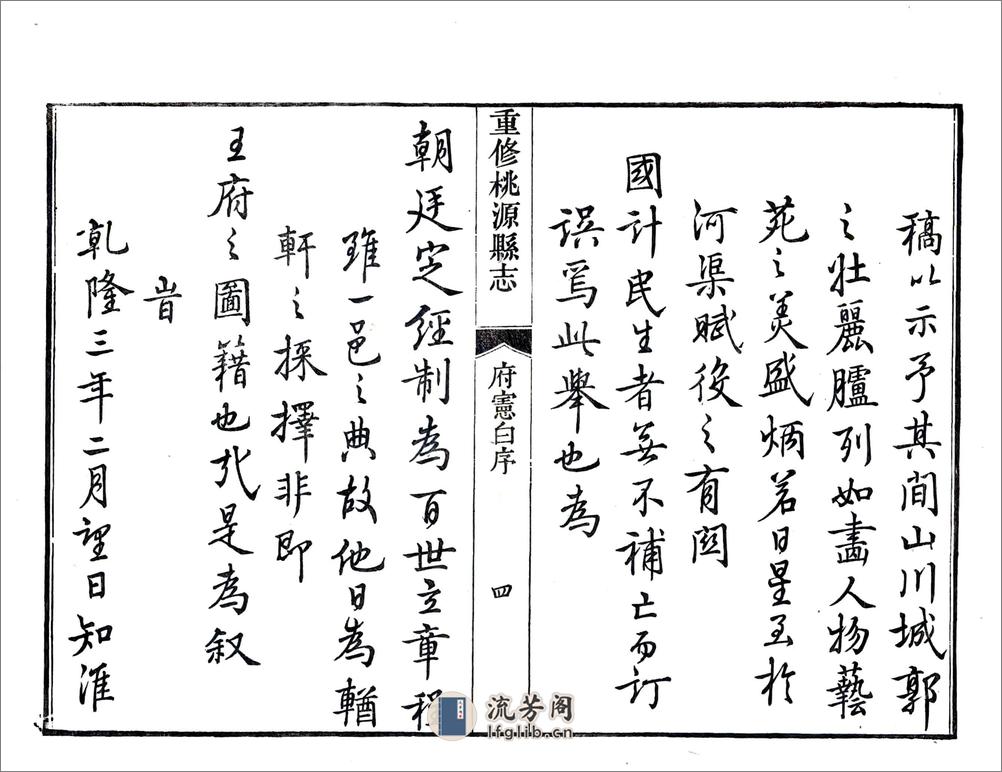 稿以示予其間山川城郭
之壯麗臚列如畫人物藝
苑之美盛炳若日星至於
河渠賦役之有関
國計民生者無不補亡而訂
誤焉此舉也為
重修桃源縣志
府憲白序
四
朝廷定經制為百世立章程
雖一邑之典故他日為輶
軒之採擇非即
王府之圖籍也
是為叙
旹
乾隆三年二月望日知淮
流芳阁
lfglib.cn